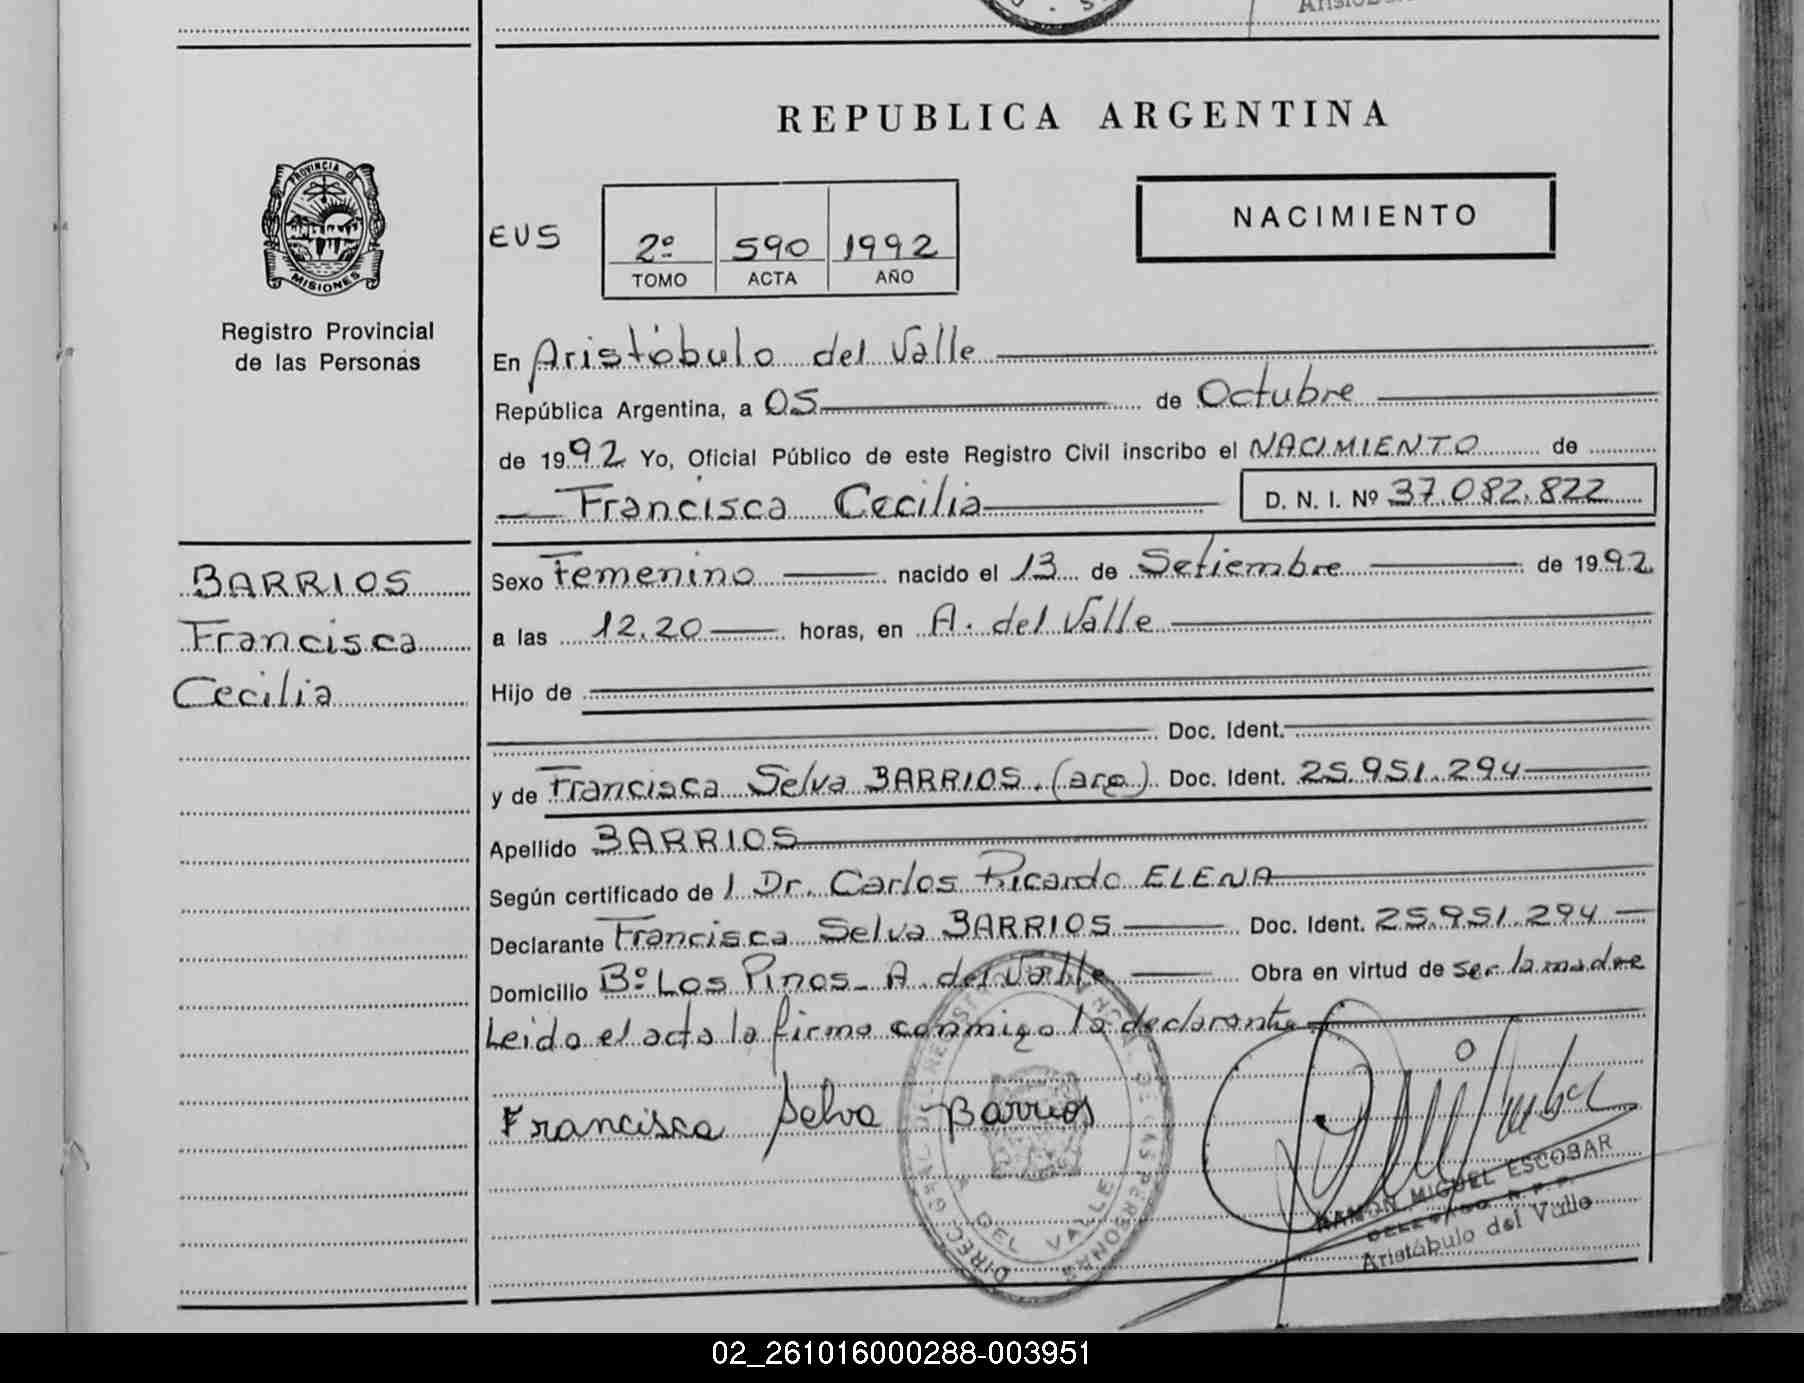 PROVINCIA DE
MISIONES
Registro Provincial
de las Personas
BARRIOS
Francisca
Cecilia
REPUBLICA ARGENTINA
EUS
2º 590 1992
TOMO ACTA AÑO
NACIMIENTO
En Aristóbulo del Valle
República Argentina, a 05 de Octubre
de 1992 Yo, Oficial Público de este Registro Civil inscribo el NACIMIENTO de
Francisca Cecilia D. N. I. Nº 37.082.822
Sexo Femenino nacido el 13 de Setiembre de 1992
a las 12.20 horas, en A. del Valle
Hijo de
Doc. Ident.
y de Francisca Selva BARRIOS. (arg) Doc. Ident. 25.951.294
Apellido BARRIOS
Según certificado de 1 Dr. Carlos Ricardo ELENA
Declarante Francisca Selva BARRIOS Doc. Ident. 25.951.294
Domicilio Bº Los Pinos - A. del Valle Obra en virtud de ser la madre
Leido el acta la firma conmigo la declarante
Francisca Selva Barrios
RAMON MIGUEL ESCOBAR
DELEGADO R. P. P.
Aristóbulo del Valle
DEL VALLE
02_261016000288-003951